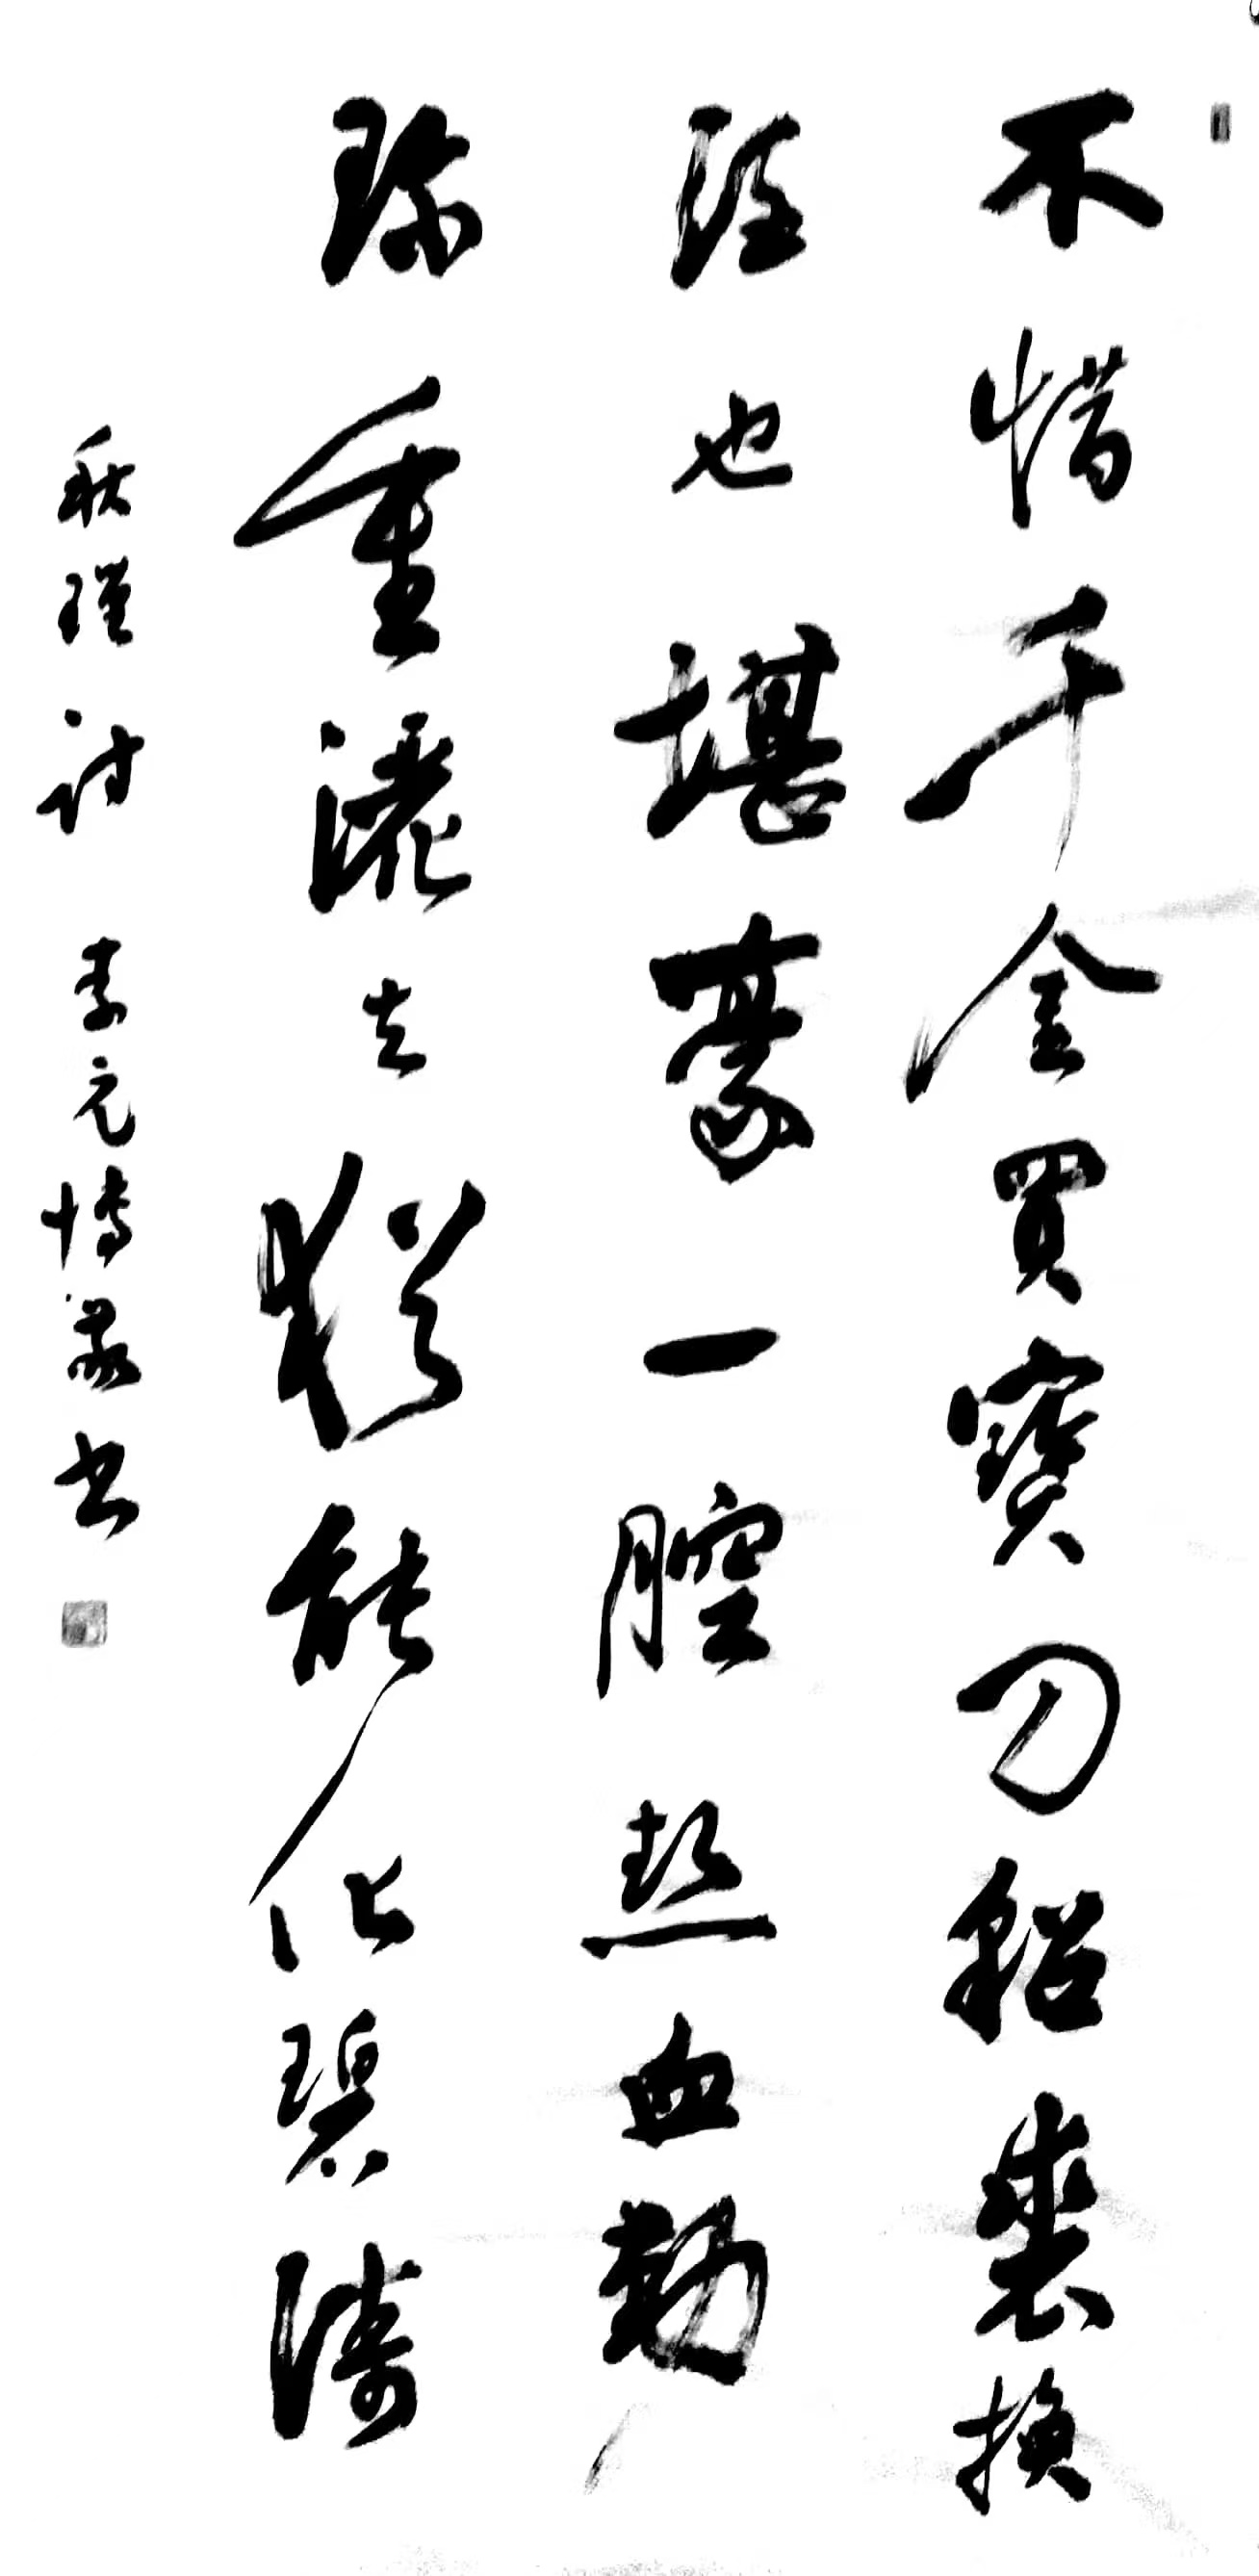 不惜千金買寶刀貂裘換
酒也堪豪一腔熱血勤
珍重灑去猶能化碧濤
秋瑾詩 元博书